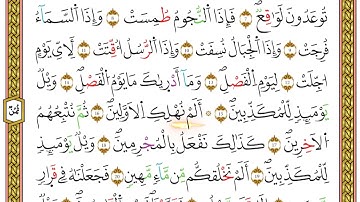 تُوعَدُونَ لَوَاقِعٌ ۝ فَإِذَا النُّجُومُ طُمِسَتْ ۝ وَإِذَا السَّمَاءُ
فُرِجَتْ ۝ وَإِذَا الْجِبَالُ نُسِفَتْ ۝ وَإِذَا الرُّسُلُ أُقِّتَتْ ۝ لِأَيِّ يَوْمٍ
أُجِّلَتْ ۝ لِيَوْمِ الْفَصْلِ ۝ وَمَا أَدْرٰيكَ مَا يَوْمُ الْفَصْلِ ۝ وَيْلٌ
يَوْمَئِذٍ لِلْمُكَذِّبِينَ ۝ أَلَمْ نُهْلِكِ الْأَوَّلِينَ ۝ ثُمَّ نُتْبِعُهُمُ
الْآخِرِينَ ۝ كَذَٰلِكَ نَفْعَلُ بِالْمُجْرِمِينَ ۝ وَيْلٌ يَوْمَئِذٍ
لِلْمُكَذِّبِينَ ۝ أَلَمْ نَخْلُقْكُمْ مِنْ مَاءٍ مَهِينٍ ۝ فَجَعَلْنَاهُ فِي قَرَارٍ